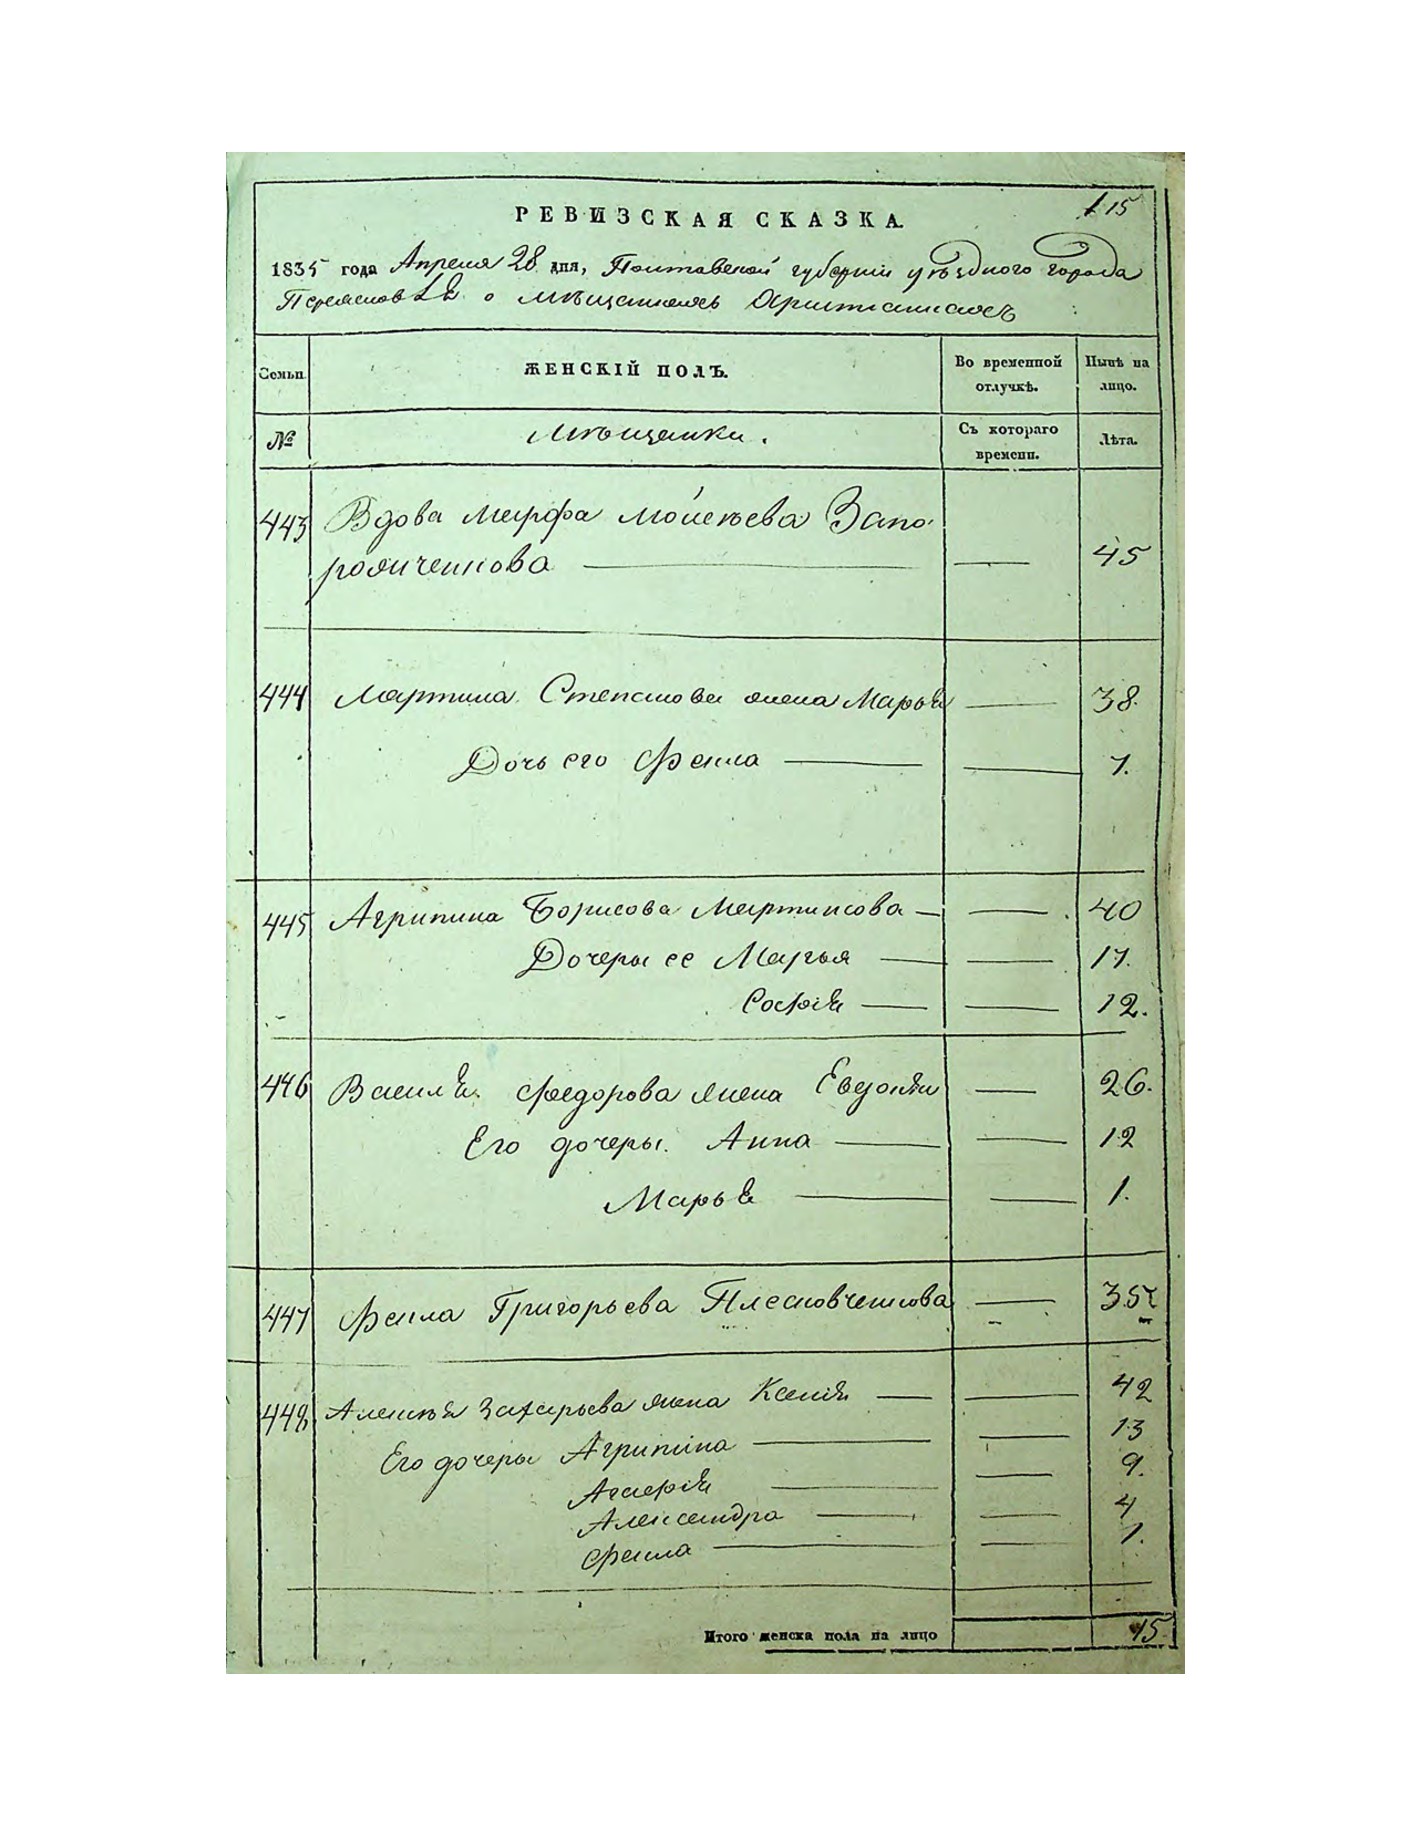 115
РЕВИЗСКАЯ СКАЗКА.
1835 года Апреля 28 дня, Полтавской губернии уѣздного города
Переяслов о мѣщанахъ христианахъ
Семьи. ЖЕНСКІЙ ПОЛЪ. Во временной отлучкѣ. Нынѣ на лицо.
№ Мѣщанки. Съ котораго времени. Лѣта.
443 Вдова Марфа Моисѣева Запо-
рожченкова — — 45
444 Мартина Степанова жена Марья — 38.
Дочь его Фекла — — 7.
445 Агрипина Борисова Мартинова — — 40
Дочеры ее Марья — — 17.
Софія — — 12.
446 Василя Федорова жена Евдокия — 26.
Его дочеры. Анна — — 12
Марья — — 1.
447 Фекла Григорьева — 35
448 Алексѣя Захарьева жена Ксенія — — 42
Его дочеры Агрипина — — 13
— — 9.
Александра — — 4
Фекла — — 1.
Итого женска пола на лицо 15